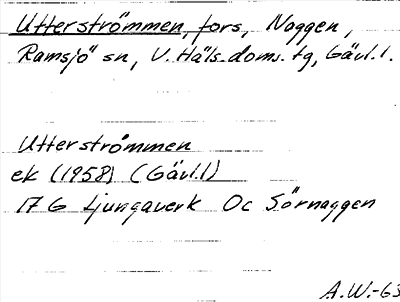 Utterströmmen, fors, Naggen,
Ramsjö sn, V. Häls. doms. tg, Gävl. l.
Utterströmmen
ek (1958) (Gävl. l)
17 G Ljungaverk Oc Sörnaggen
A.W.-63